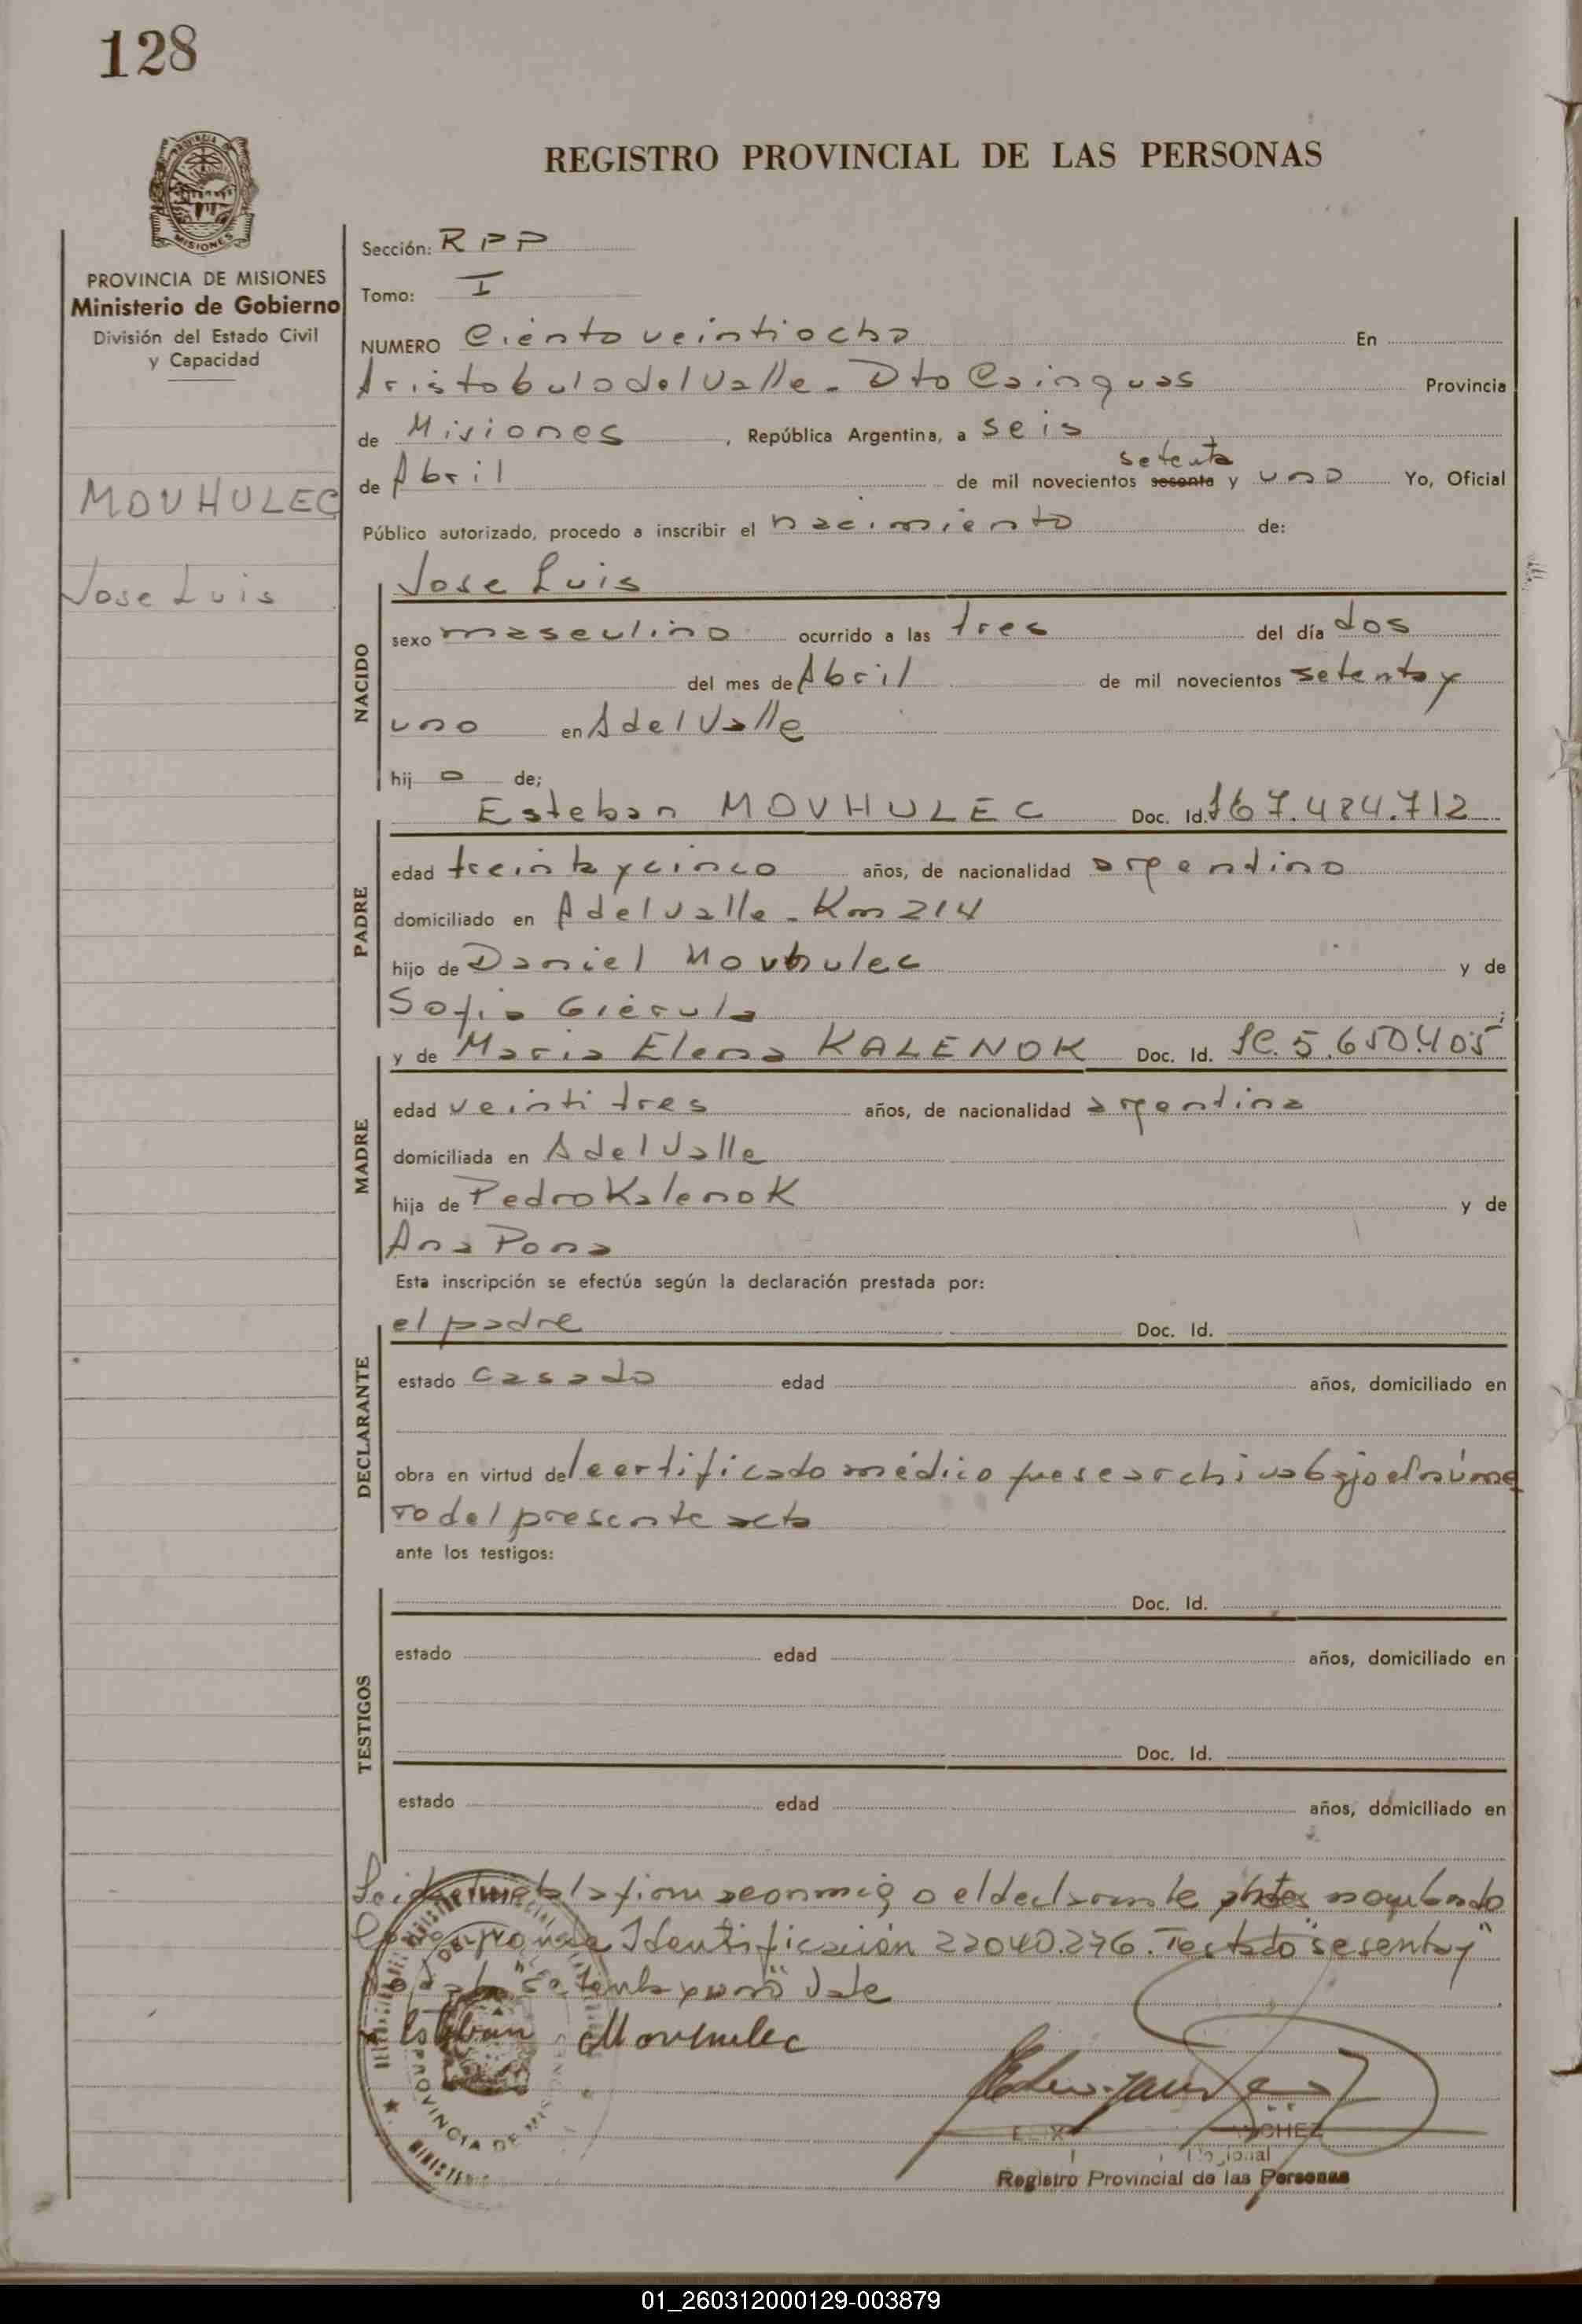 128
REGISTRO PROVINCIAL DE LAS PERSONAS
PROVINCIA DE MISIONES
Ministerio de Gobierno
División del Estado Civil
y Capacidad
MOVHULEC
Jose Luis
Sección: RPP
Tomo: I
NUMERO Ciento veintiocho En
Aristobulo del Valle - Dto Cainguas Provincia
de Misiones, República Argentina, a seis
setenta
de Abril de mil novecientos sesenta y uno Yo, Oficial
Público autorizado, procedo a inscribir el nacimiento de:
NACIDO
Jose Luis
sexo masculino ocurrido a las tres del día dos
del mes de Abril de mil novecientos setenta y
uno en A del Valle
hijo de;
PADRE
Esteban MOVHULEC Doc. Id. 7.484.712
edad treinta y cinco años, de nacionalidad argentino
domiciliado en A del Valle - Km 214
hijo de Daniel Movhulec y de
Sofia Gierula;
MADRE
y de Maria Elena KALENOK Doc. Id. 5.650.405
edad veintitres años, de nacionalidad argentina
domiciliada en A del Valle
hija de Pedro Kalenok y de
Ana Pona
Esta inscripción se efectúa según la declaración prestada por:
DECLARANTE
el padre Doc. Id.
estado casado edad años, domiciliado en
obra en virtud del certificado médico que se archiva bajo el núme
ro del presente acta
ante los testigos:
TESTIGOS
Doc. Id.
estado edad años, domiciliado en
Doc. Id.
estado edad años, domiciliado en
Leida el acta la firma conmigo el declarante
Identificación 22040.276. Testado "sesenta y"
"setenta y uno" Vale
Esteban Movhulec
Registro Provincial de las Personas
PROVINCIA DE
01_260312000129-003879